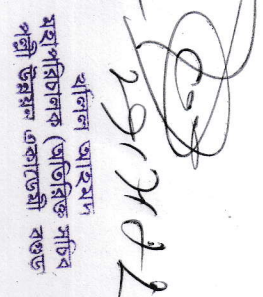 খলিল আহমদ
মহাপরিচালক (অতিরিক্ত সচিব
পল্লী উন্নয়ন একাডেমী বগুড